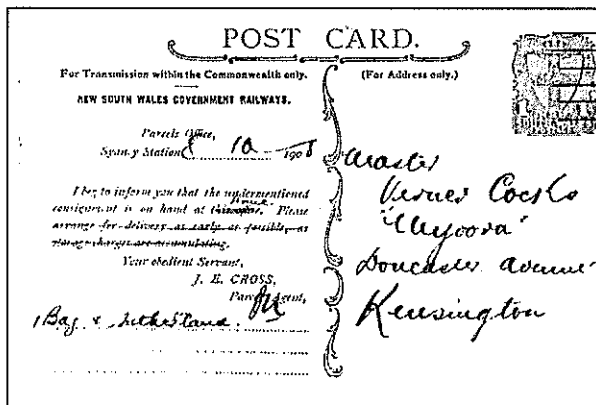 POST CARD.
For Transmission within the Commonwealth only.
NEW SOUTH WALES GOVERNMENT RAILWAYS.
Parcels Office,
Sydney Station 8 10 1908
I beg to inform you that the undermentioned
consignment is on hand at Please
arrange for delivery as early as possible, as
storage charges are accumulating.
Your obedient Servant,
J. E. CROSS,
Parcels Agent,
1 Bag
(For Address only.)
Master
Verner Cocks
Doncaster Avenue
Kensington